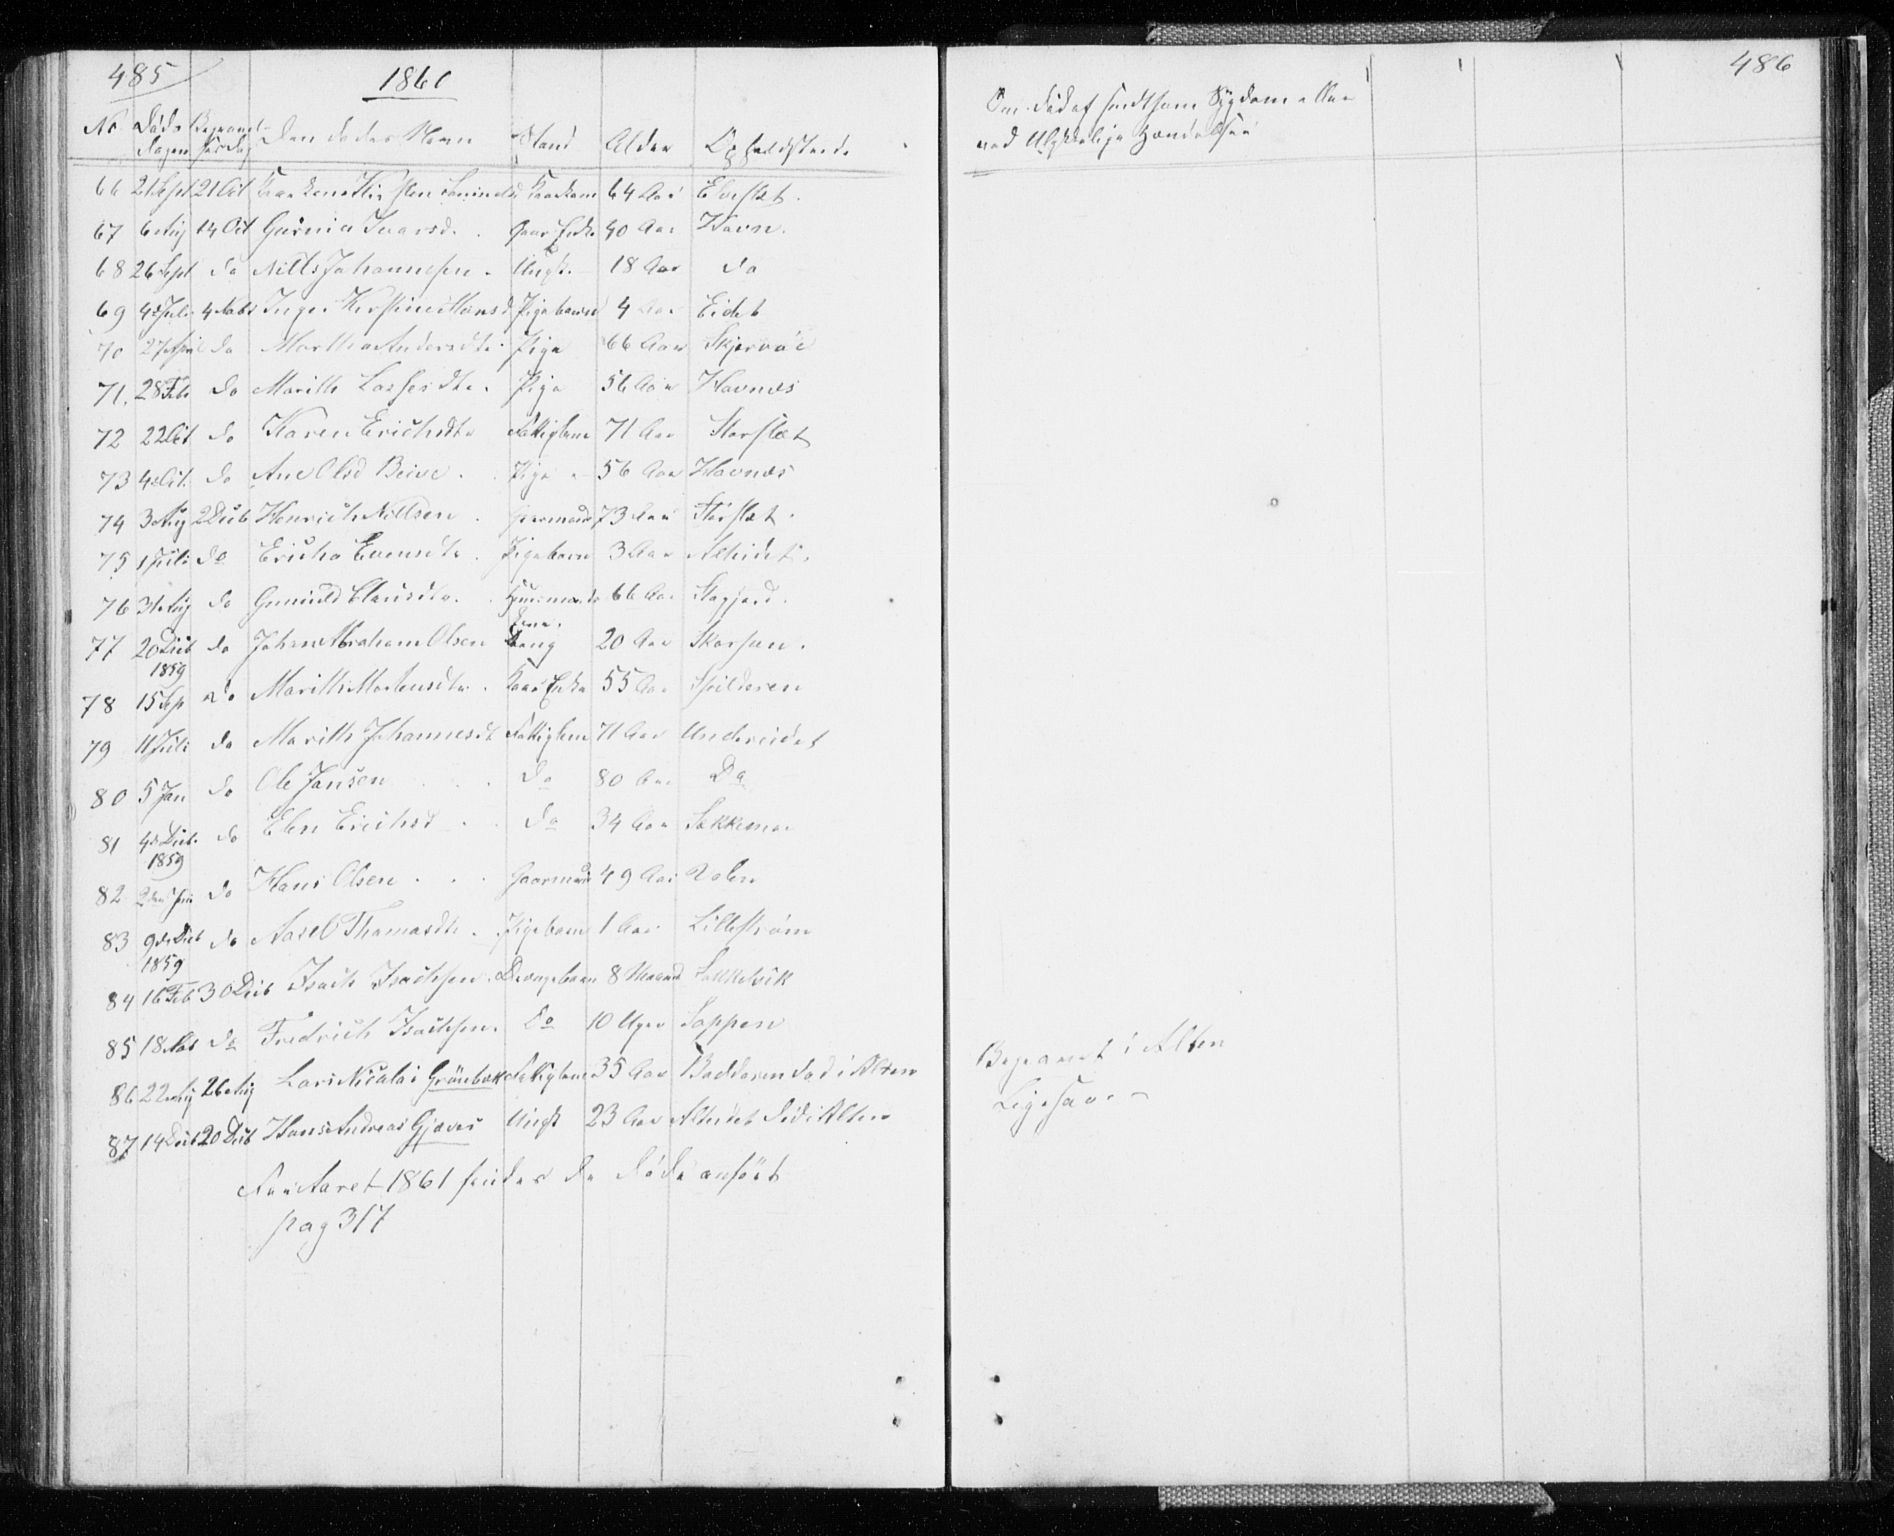 485
1860
No Døds dagen Begravelsesdag Den dødes Navn Stand Alder Opholdsted
66 21 Sept 21 Oct 64 Aar Elvslet.
67 6 Aug 14 Oct Ivarsd. 90 Aar Havn.
68 26 Sept do Nills Johannesen. Ungk. 18 Aar do
69 4de Juli 4 Nobr Inger Kirstine Hansd Pigebarn 4 Aar Eidet
70 27 April do Marthe Andersdtr. Pige 66 Aar Skjervöe
71. 28 Feb do Marith Lassesdtr. Pige 56 Aar Havnæs
72 22 Oct do Karen Erichsdtr Fattiglem 71 Aar Storslet
73 4de Oct. do Ane Olsd Beive. Pige 56 Aar Havnæs
74 3 Aug 2 Decb Henrich Nillsen. Gaarmand 73 Aar Storslet.
75 1 Juli do Ericha Evensdtr. Pigebarn 3 Aar Alteidet.
76 31 Aug do Gunnild Clausdtr. Huusmands Kone. 66 Aar
77 20 Decb 1859 do Johan Abraham Olsen Dreng 20 Aar
78 15 Sep do Marith Mortensdtr. 55 Aar Spilderen
79 11 Juli do Marith Johannesdt Fattiglem 71 Aar Undereidet
80 5 Jan do Ole Jansen do 80 Aar Do
81 4de Decb. 1859 do Elen Erichsd do 34 Aar Sækkemo
82 do Hans Olsen Gaarmand 49 Aar Valen
83 9de Decb 1859 do Aasel Thomasdtr. Pigebarn 1 Aar Lillestrøm
84 16 Feb 30 Decb Isach Isachsen. Drengebarn 8 Maand Sækkelvik
85 18 Nov do Fredrich Isachsen. Do 10 Uger Sappen
86 22 Aug 26 Aug Lars Nicolai Grönbek Fattiglem 35 Aar Badderen død i Alten
87 14 Decb 20 Decb Hans Andreas Gjæver Ungk 23 Aar Alteidet død i Alten
For Aaret 1861 findes de døde anført
pag 317
486
Om død af smitsom Sygdom eller
ved Ulykkelige Hændelser
Begravet i Alten
Ligesaa